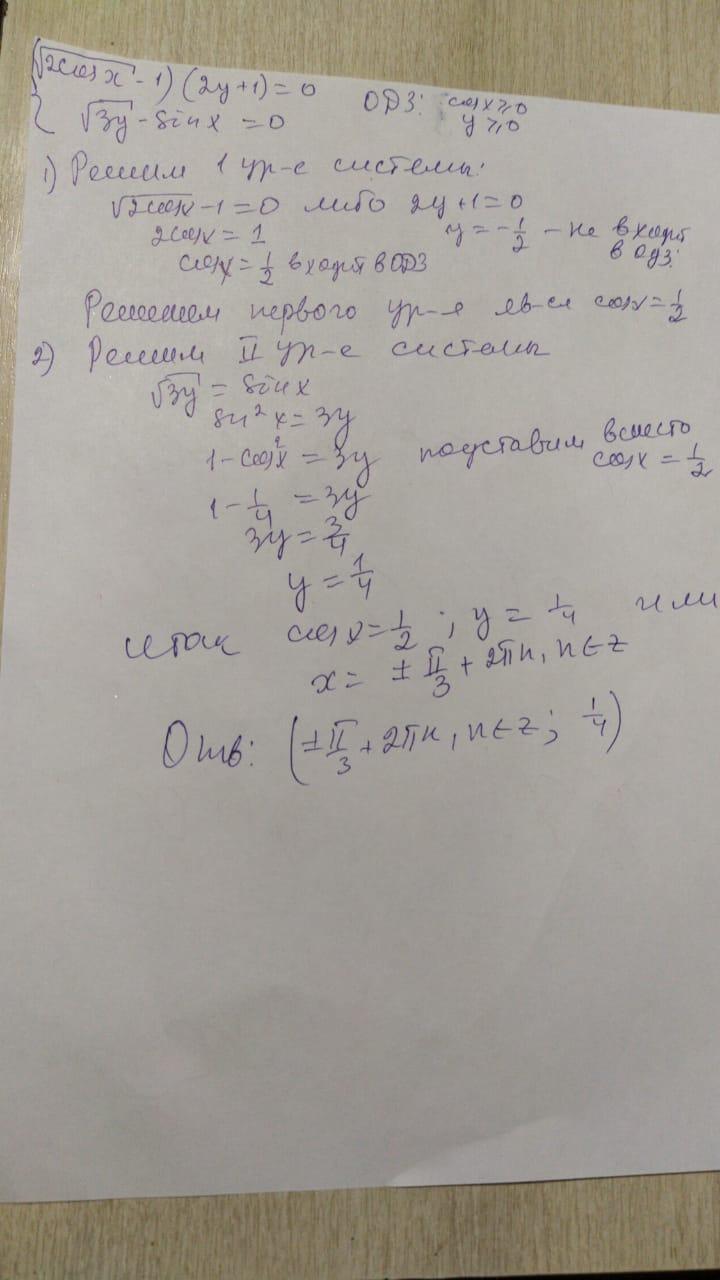 (√2cosx - 1)(2y+1) = 0 ОДЗ: cosx ≥ 0
{ √3y - sinx = 0 y ≥ 0
1) Решим 1 ур-е системы:
√2cosx - 1 = 0 либо 2y+1=0
2cosx = 1 y = -1/2 - не входит
cosx = 1/2 входит в ОДЗ в ОДЗ.
Решением первого ур-я яв-ся cosx = 1/2
2) Решим II ур-е системы
√3y = sinx
sin²x = 3y
1 - cos²x = 3y подставим вместо
1 - 1/4 = 3y cosx = 1/2
3y = 3/4
y = 1/4
итак cosx = 1/2 ; y = 1/4 или
x = ± π/3 + 2πn, n∈z
Отв: (± π/3 + 2πn, n∈z ; 1/4)